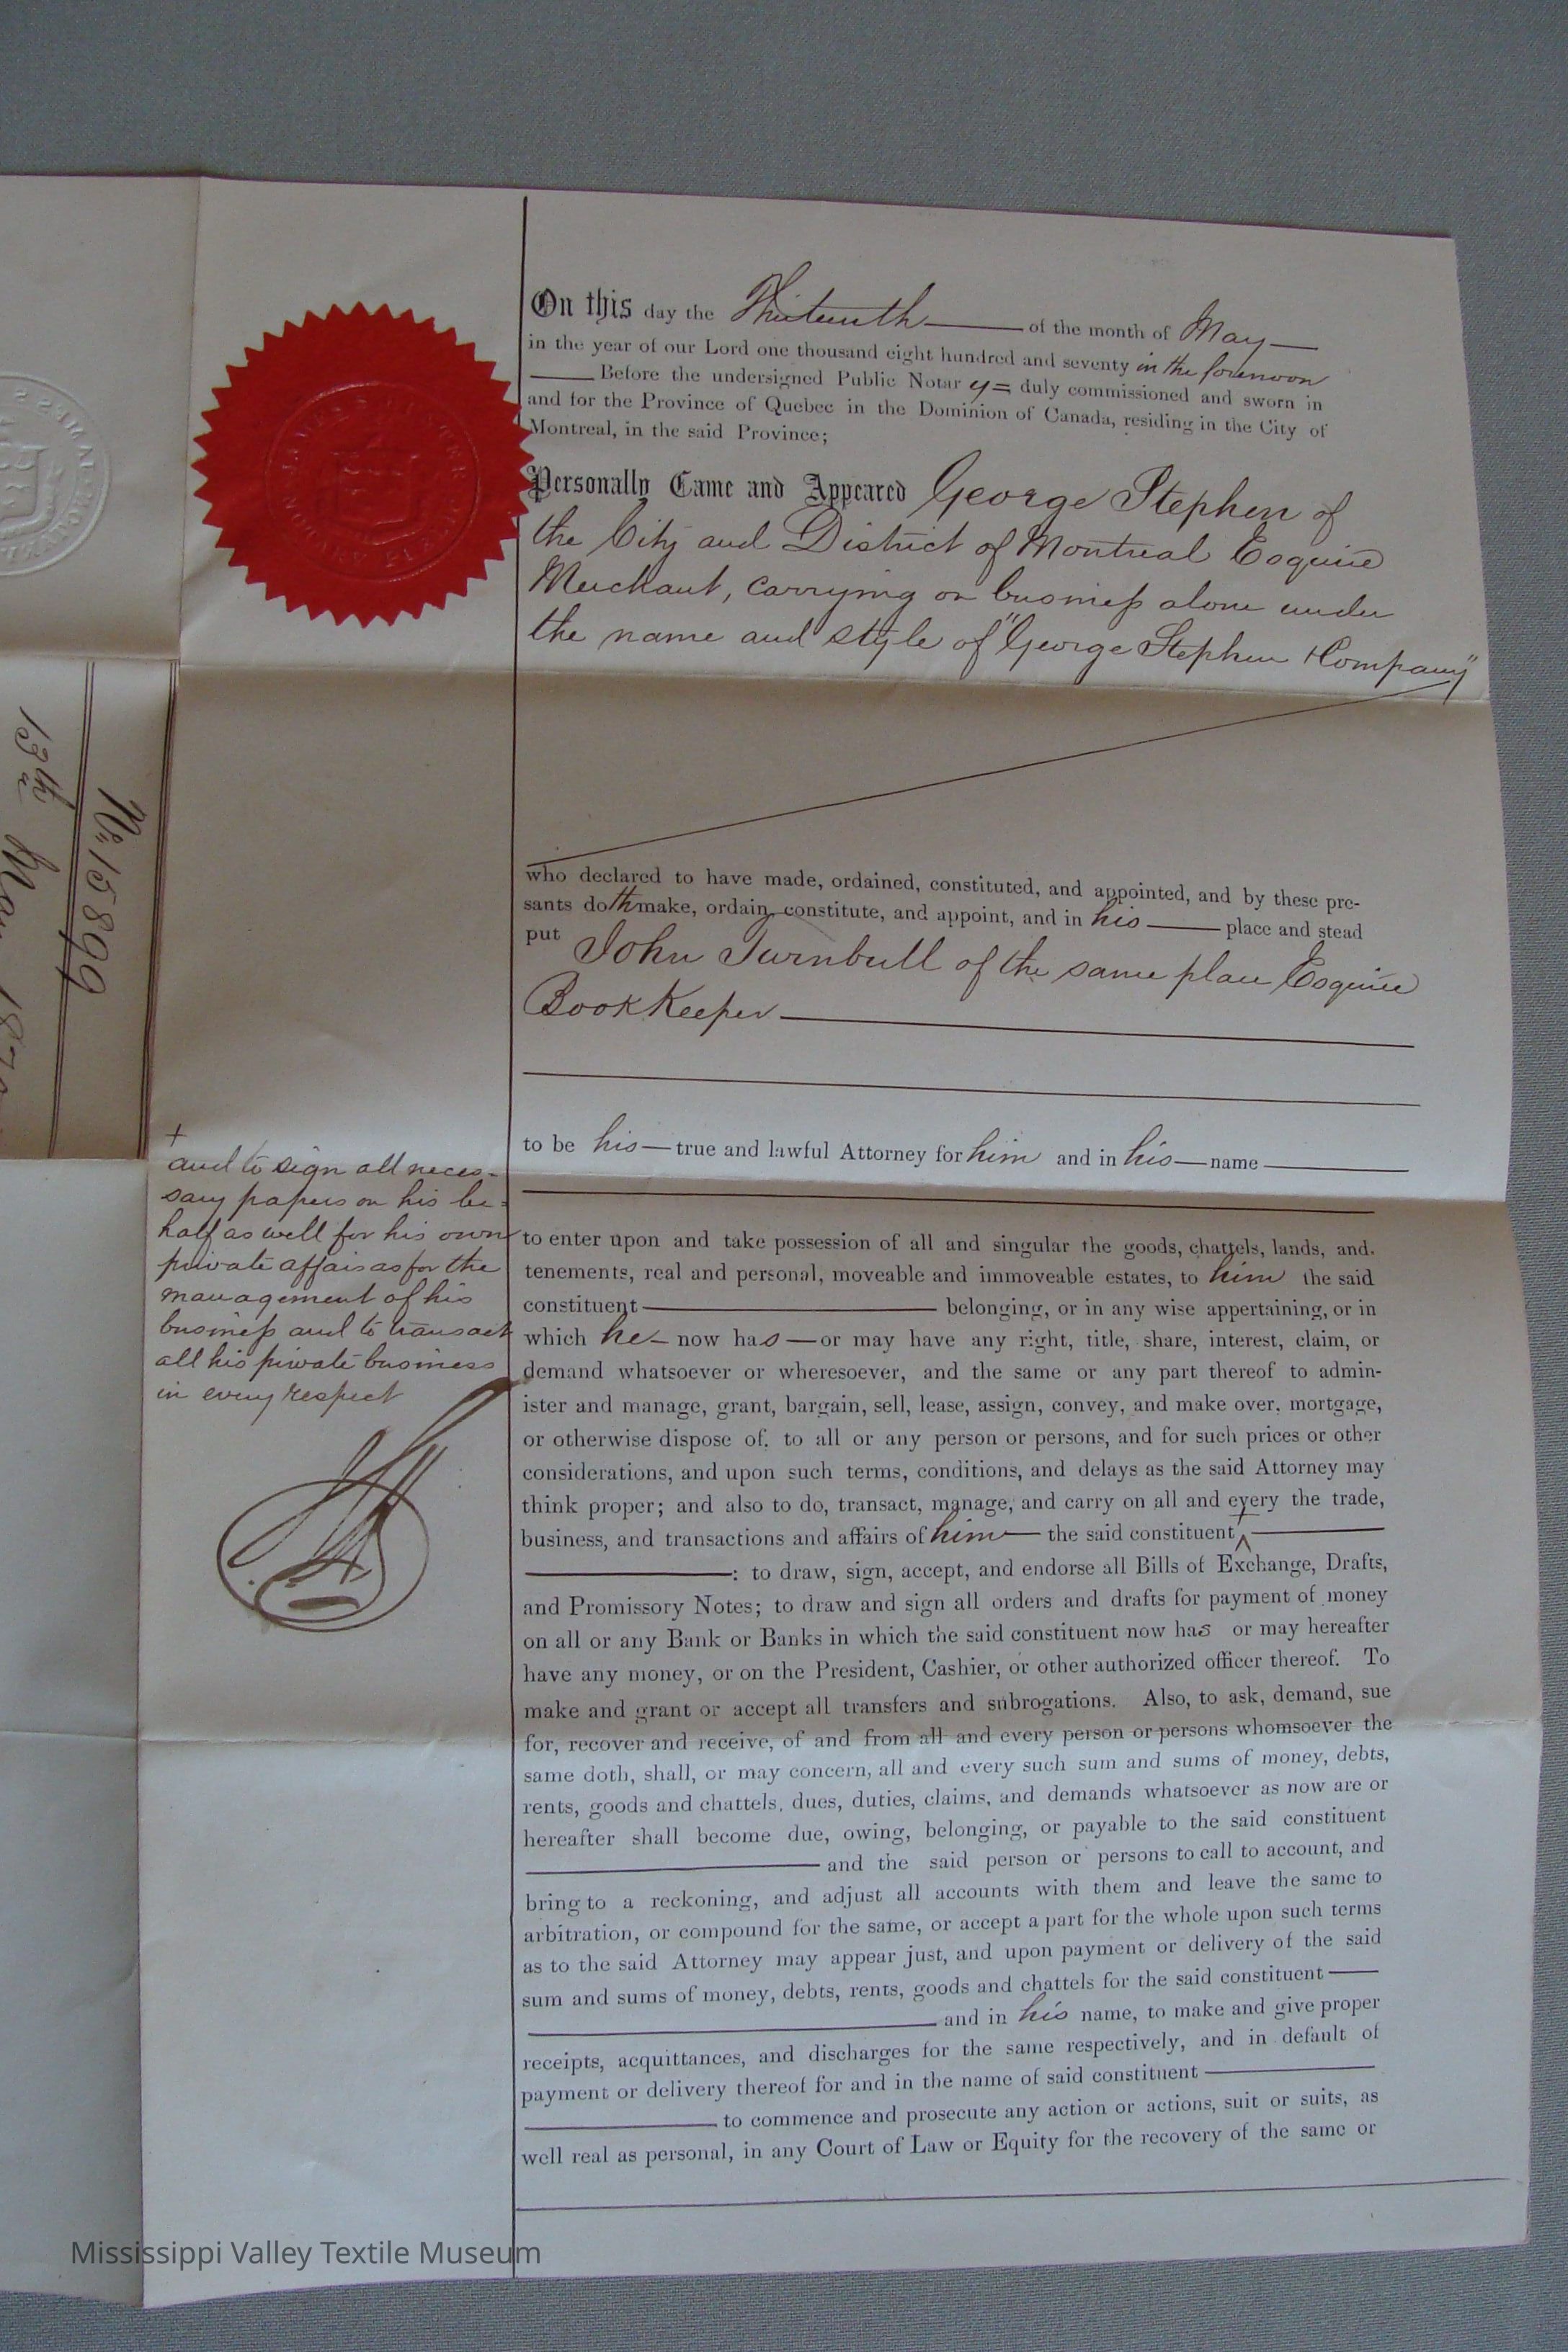 On this day the Thirteenth of the month of May
in the year of our Lord one thousand eight hundred and seventy in the forenoon
Before the undersigned Public Notary duly commissioned and sworn in
and for the Province of Quebec in the Dominion of Canada, residing in the City of
Montreal, in the said Province;
Personally Came and Appeared George Stephen of
the City and District of Montreal Esquire
Merchant, carrying on business alone under
the name and style of "George Stephen & Company"
who declared to have made, ordained, constituted, and appointed, and by these pre-
sants doth make, ordain, constitute, and appoint, and in his place and stead
put John Turnbull of the same place Esquire
BookKeeper
to be his true and lawful Attorney for him and in his name
to enter upon and take possession of all and singular the goods, chattels, lands, and
tenements, real and personal, moveable and immoveable estates, to him the said
constituent belonging, or in any wise appertaining, or in
which he now has or may have any right, title, share, interest, claim, or
demand whatsoever or wheresoever, and the same or any part thereof to admin-
ister and manage, grant, bargain, sell, lease, assign, convey, and make over, mortgage,
or otherwise dispose of, to all or any person or persons, and for such prices or other
considerations, and upon such terms, conditions, and delays as the said Attorney may
think proper; and also to do, transact, manage, and carry on all and every the trade,
business, and transactions and affairs of him the said constituent +
: to draw, sign, accept, and endorse all Bills of Exchange, Drafts,
and Promissory Notes; to draw and sign all orders and drafts for payment of money
on all or any Bank or Banks in which the said constituent now has or may hereafter
have any money, or on the President, Cashier, or other authorized officer thereof. To
make and grant or accept all transfers and subrogations. Also, to ask, demand, sue
for, recover and receive, of and from all and every person or persons whomsoever the
same doth, shall, or may concern, all and every such sum and sums of money, debts,
rents, goods and chattels, dues, duties, claims, and demands whatsoever as now are or
hereafter shall become due, owing, belonging, or payable to the said constituent
and the said person or persons to call to account, and
bring to a reckoning, and adjust all accounts with them and leave the same to
arbitration, or compound for the same, or accept a part for the whole upon such terms
as to the said Attorney may appear just, and upon payment or delivery of the said
sum and sums of money, debts, rents, goods and chattels for the said constituent
and in his name, to make and give proper
receipts, acquittances, and discharges for the same respectively, and in default of
payment or delivery thereof for and in the name of said constituent
to commence and prosecute any action or actions, suit or suits, as
well real as personal, in any Court of Law or Equity for the recovery of the same or
+
and to sign all neces-
sary papers on his be-
half as well for his own
private affairs as for the
management of his
business and to transact
all his private business
in every respect
No. 15899
13th May 187
Mississippi Valley Textile Museum